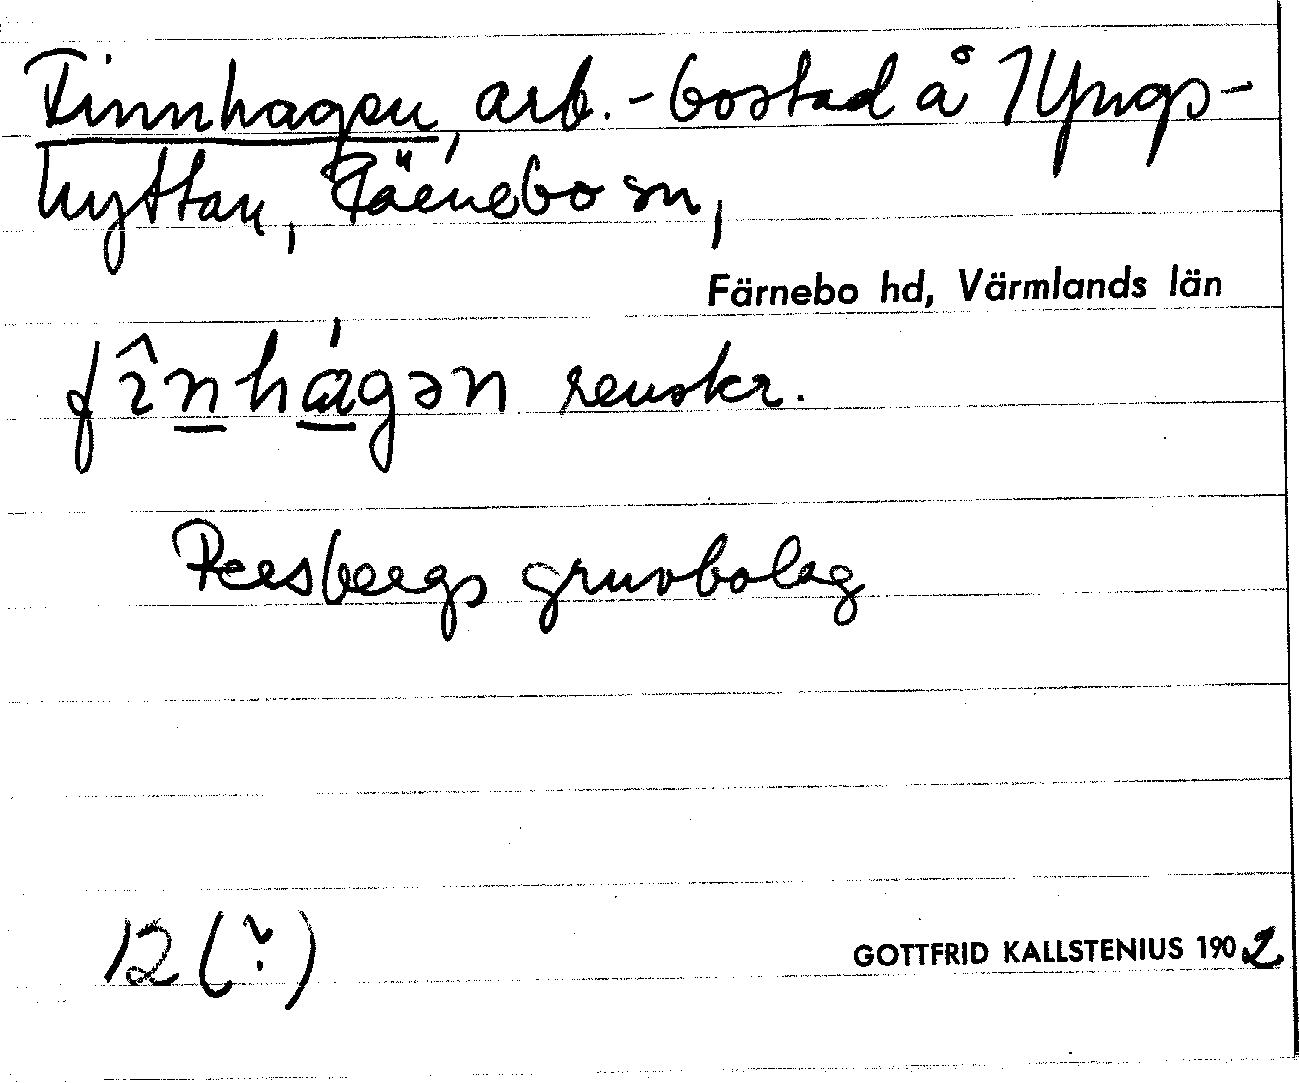 Finnhagen, arb.-bostad å Yngs-
hyttan, Färnebo sn,
Färnebo hd, Värmlands län
fînhágən renskr.
Persbergs gruvbolag
12 (?)
GOTTFRID KALLSTENIUS 1902